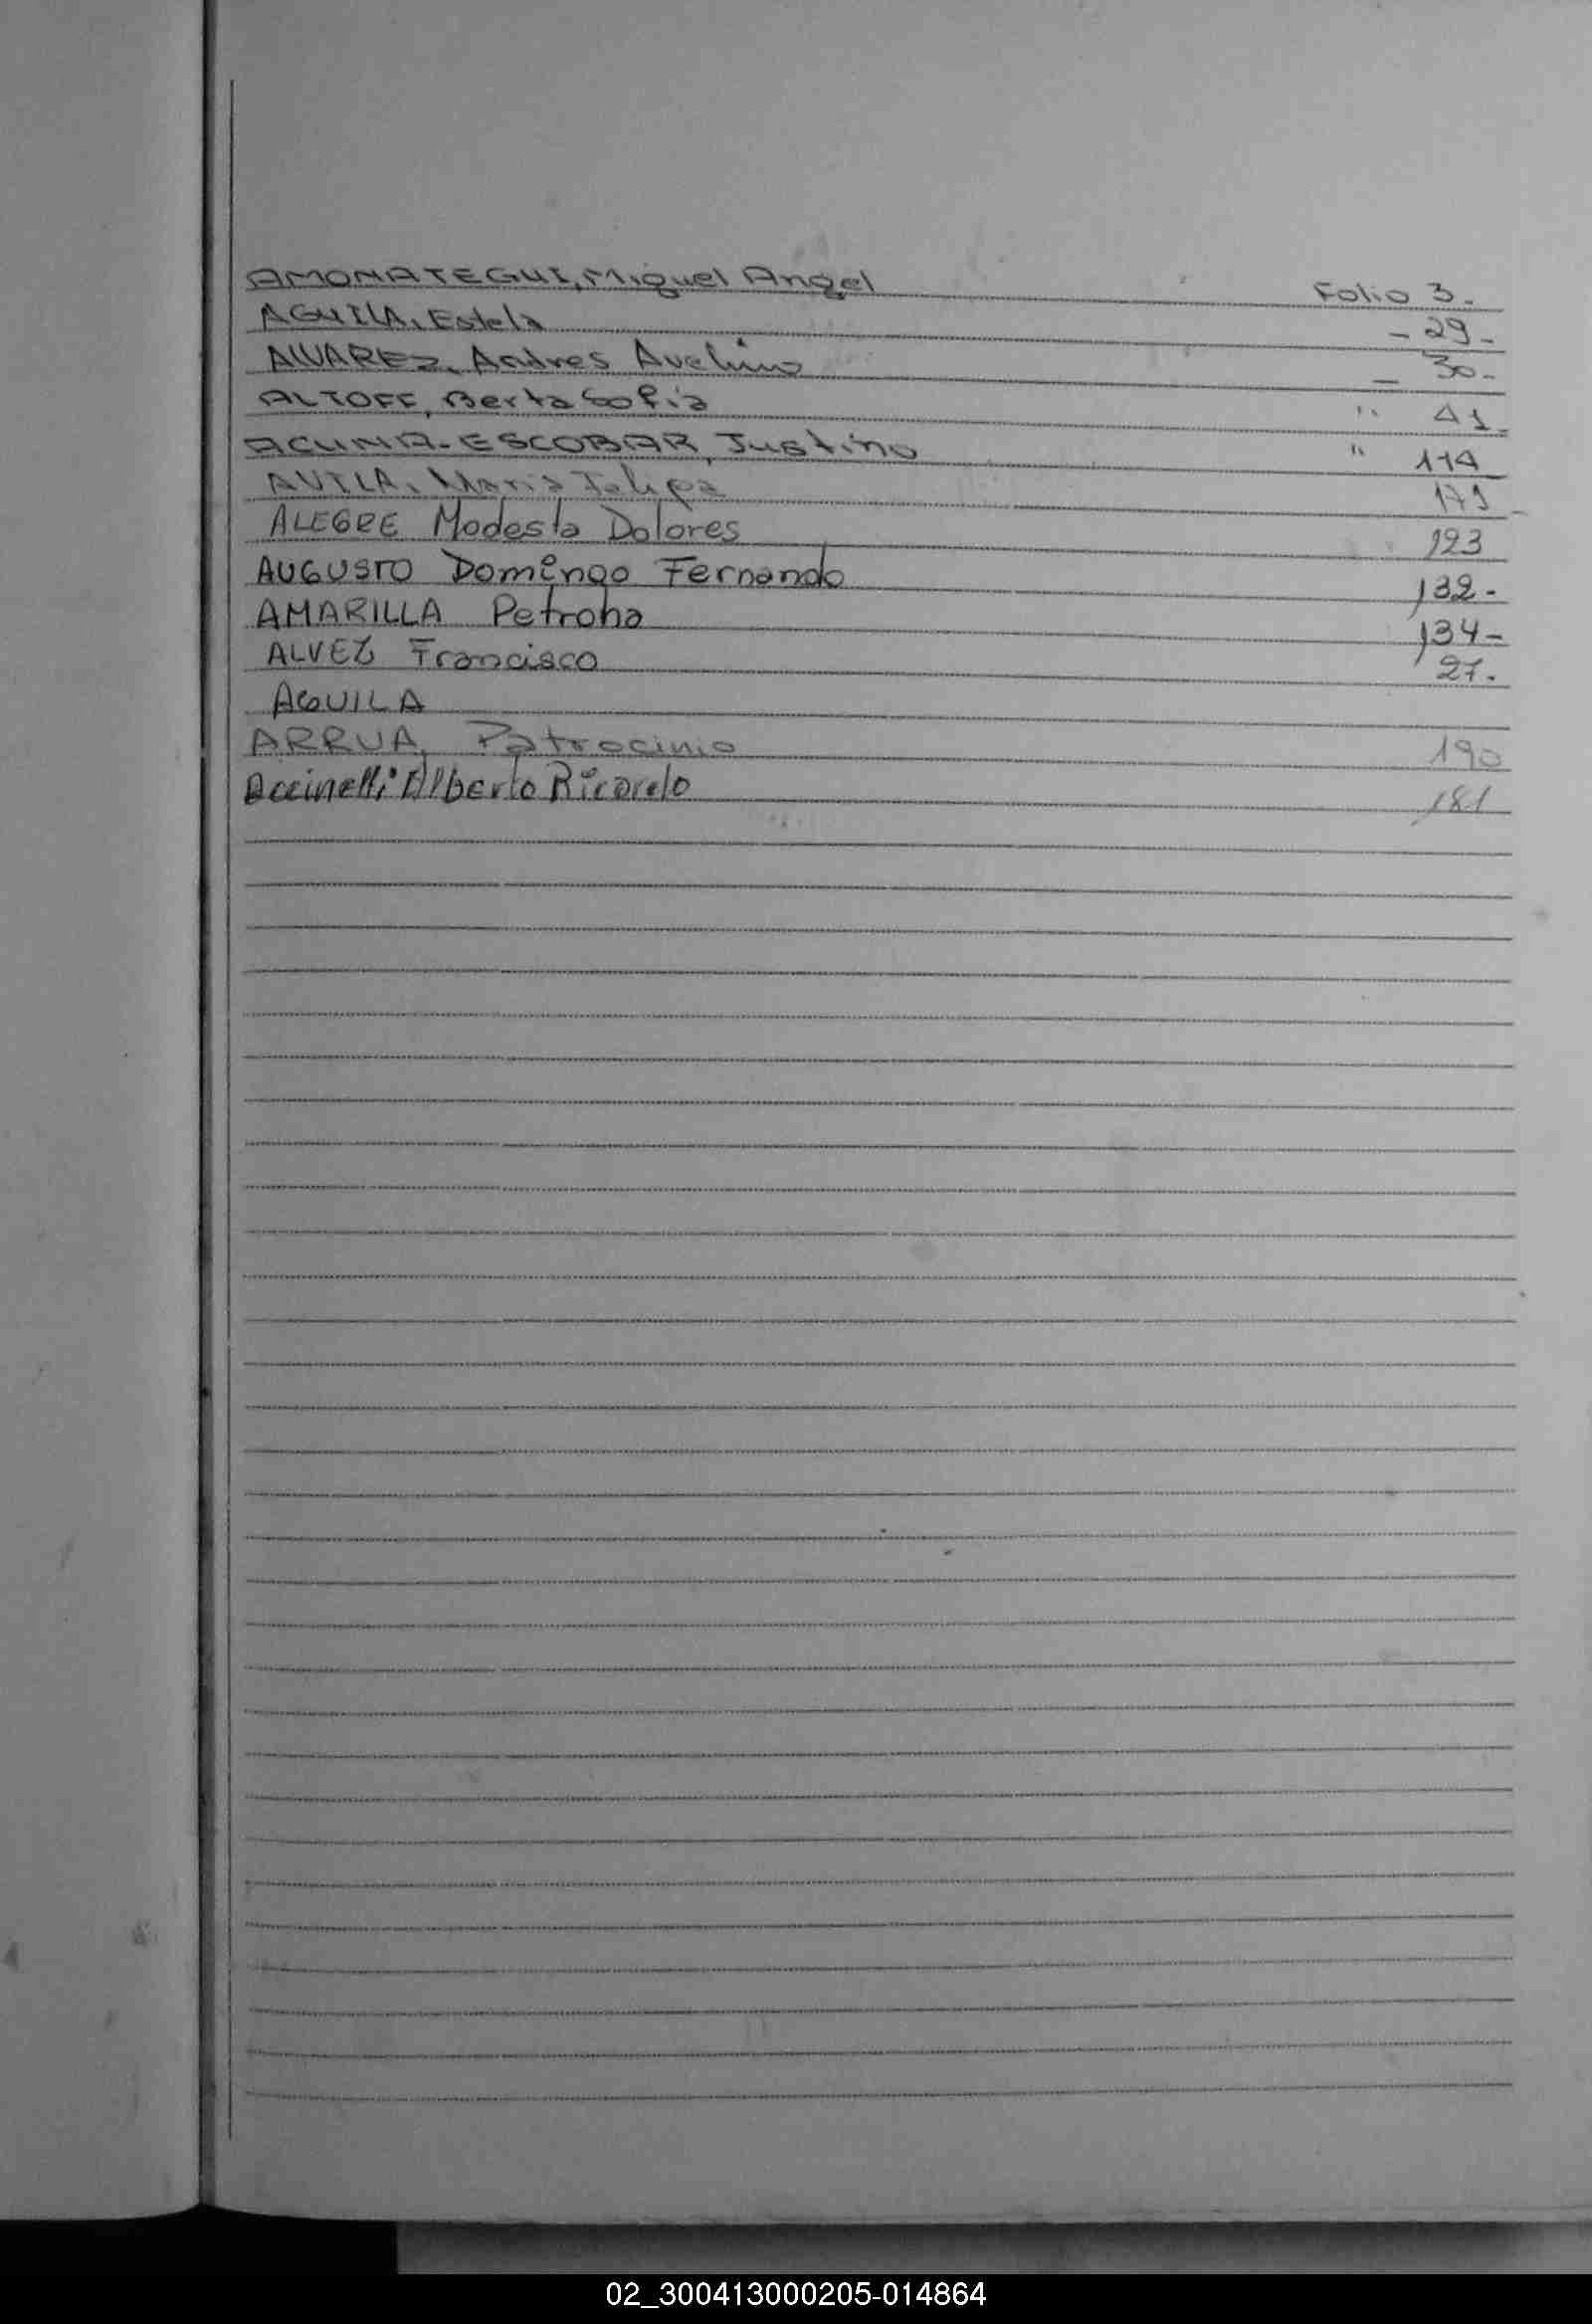 AMONATEGUI, Miguel Angel Folio 3.
AGUILA, Estela - 29 -
ALVAREZ, Andres Avelino - 30 -
ALTOFF, Berta Sofia " 41.
ACUNA-ESCOBAR, Justino " 114
AVILA, Maria Felipa 171
ALEGRE Modesta Dolores 123
AUGUSTO Domingo Fernando 132 -
AMARILLA Petrona 134 -
ALVEZ Francisco 27.
AGUILA
ARRUA, Patrocinio 190
Accinelli Alberto Ricardo 181
02_300413000205-014864